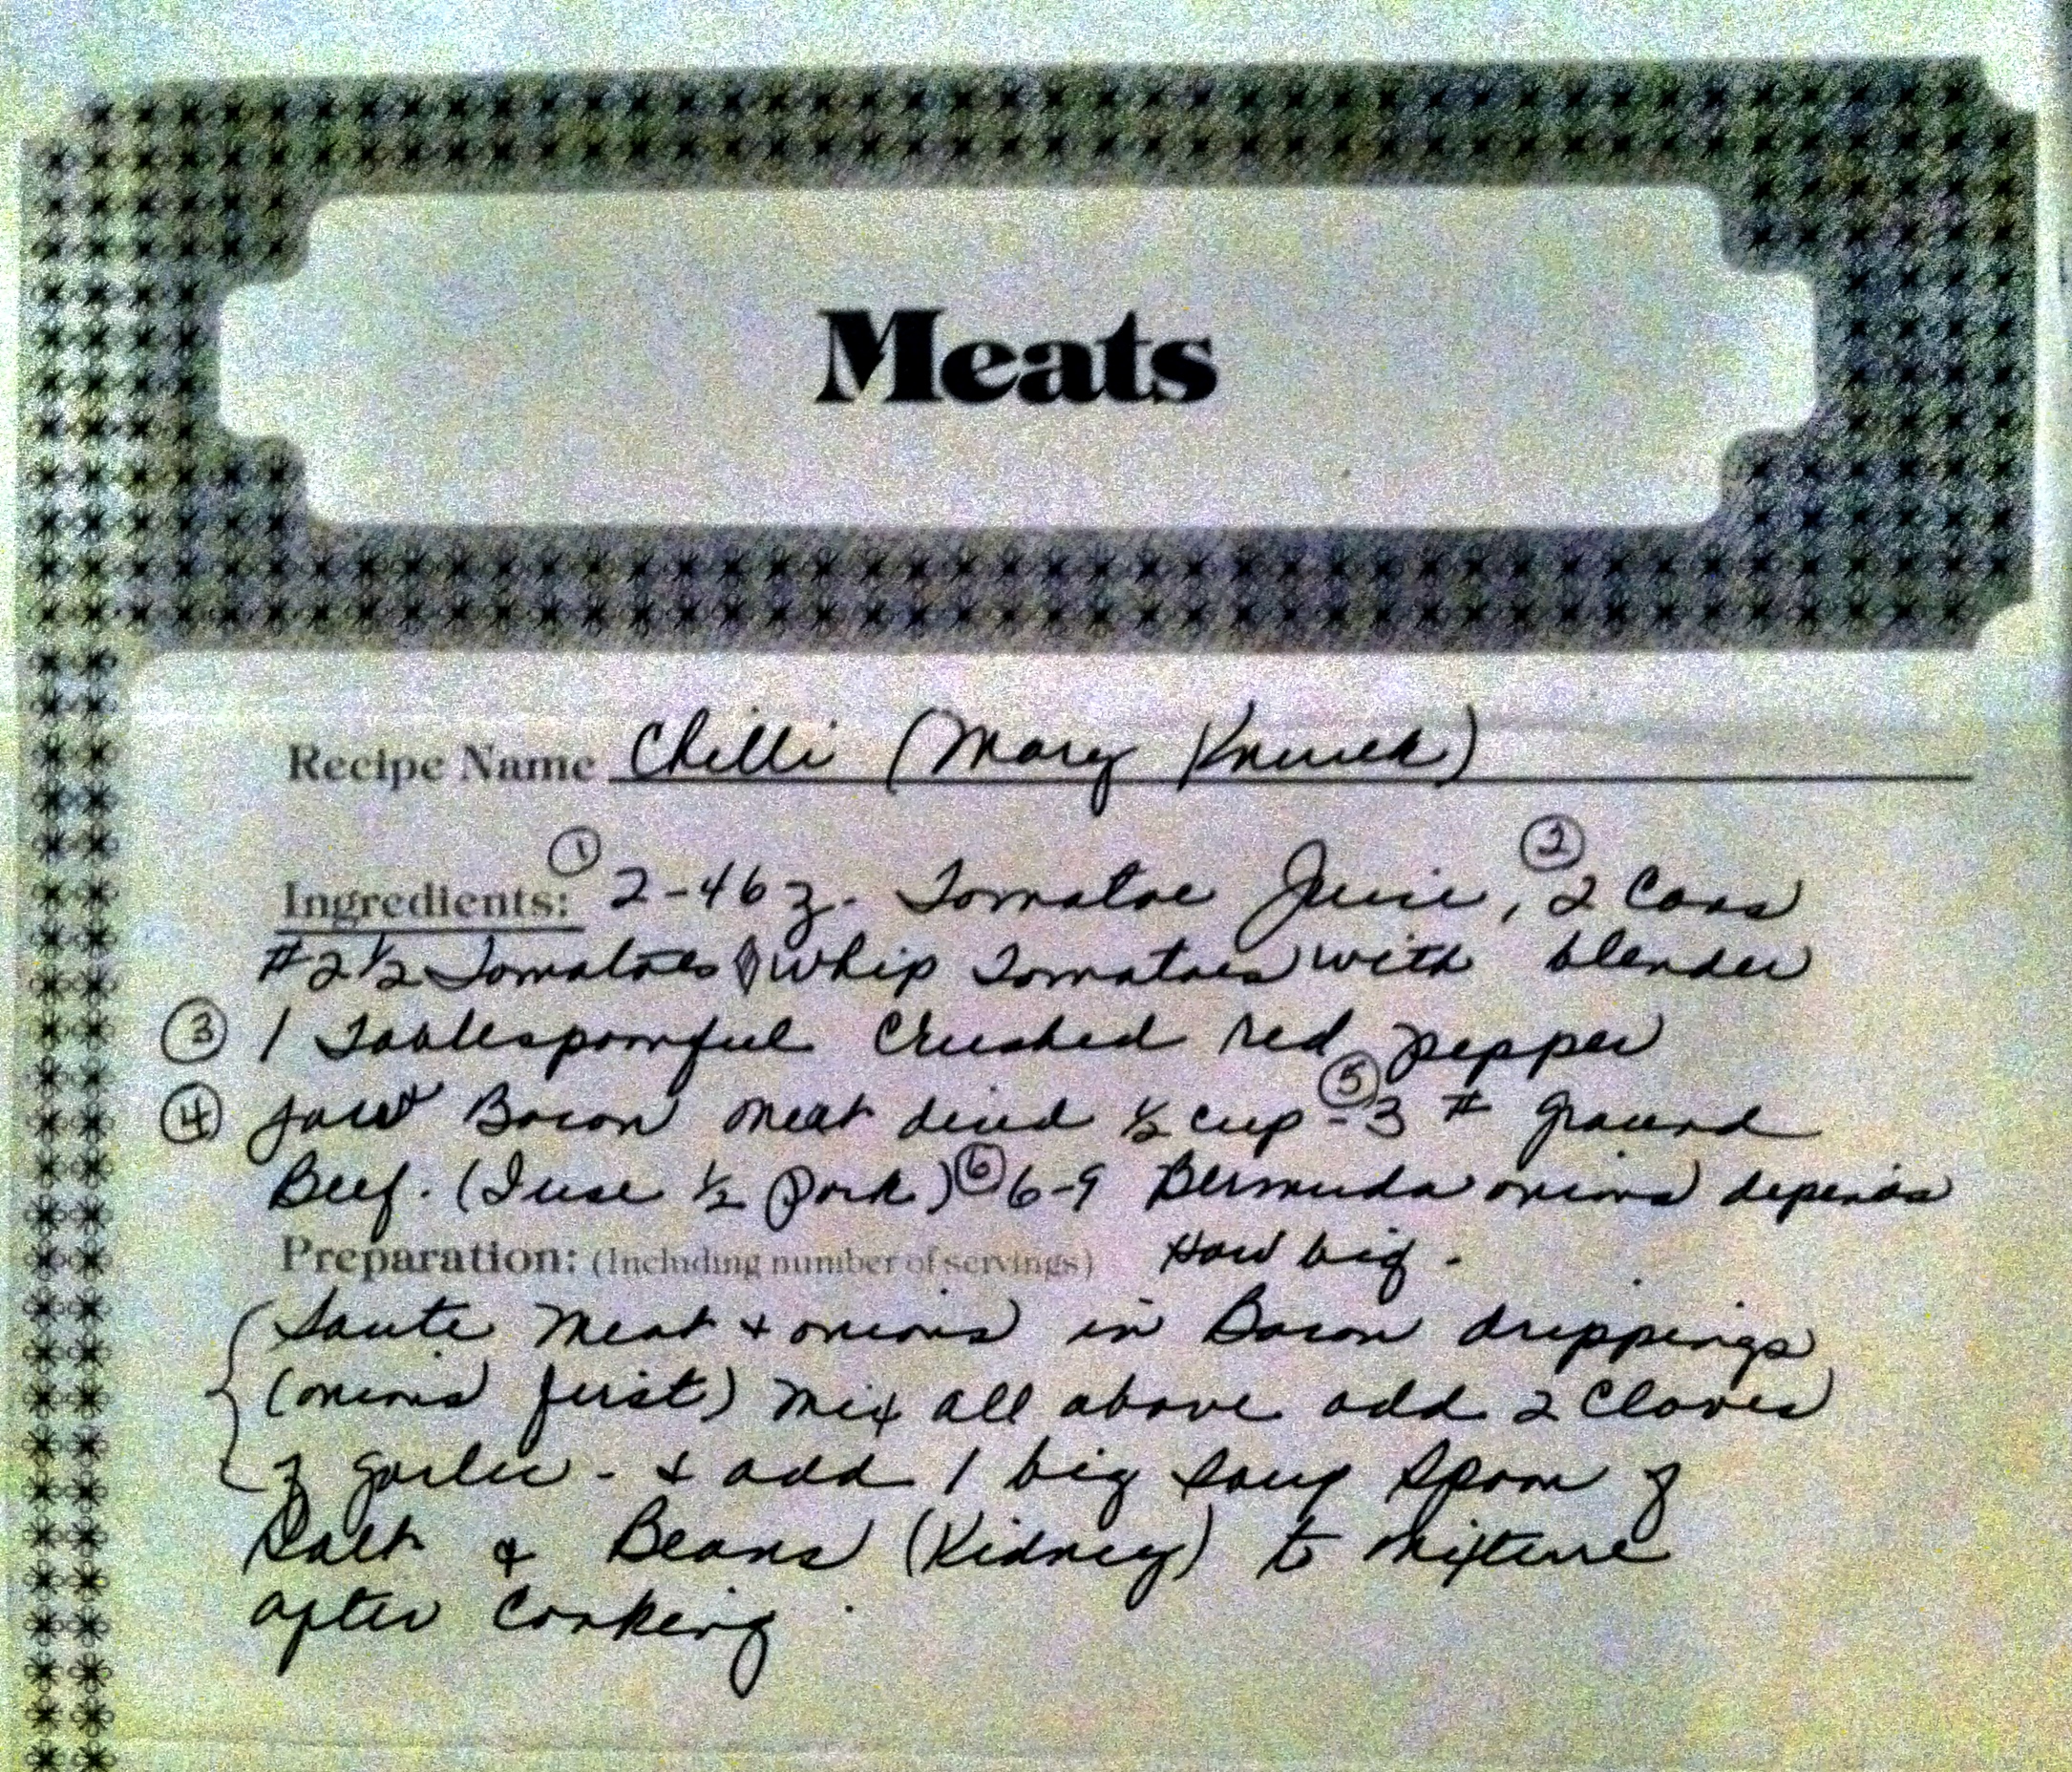 Meats
Recipe Name Chilli (Mary
① 2-46 z. Tomatoe Juice, ② 2 Cans
Ingredients:
#2 1/2 Tomatoes whip Tomatoes with blender
③ 1 Tablespoonful Crushed red pepper
④ Bacon meat diced 1/2 cup - ⑤ 3 # ground
Beef. (I use 1/2 Pork) ⑥ 6-9 Bermuda onions depends
Preparation: (Including number of servings) How big.
Saute meat + onions in Bacon drippings
(onions first) mix all above add 2 Cloves
of garlic - & add 1 big soup spoon of
Salt & Beans (Kidney) to mixture
after Cooking.